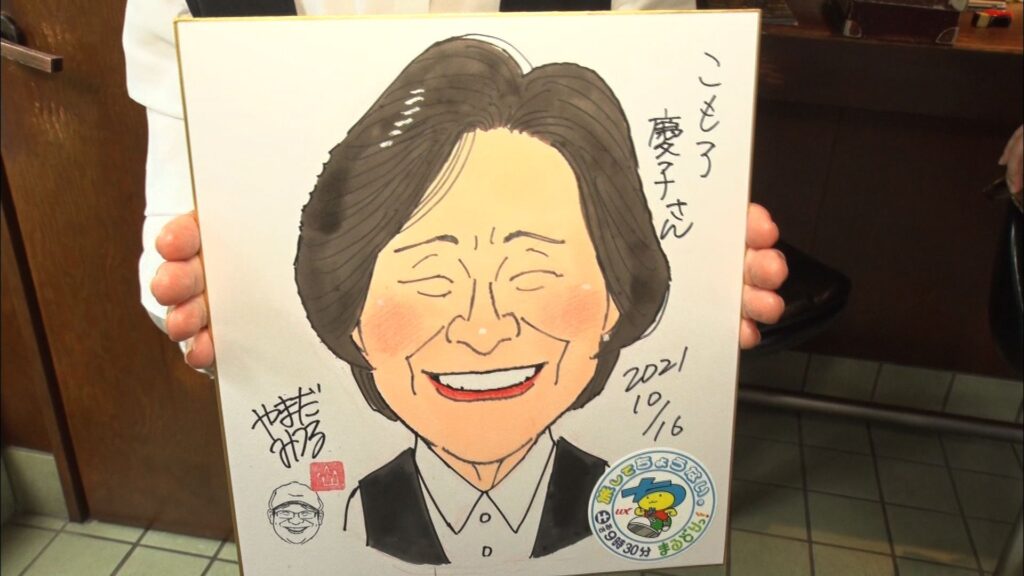 こもろ
慶子さん
2021
10/16
やまだ
みつる
旅してちょうだい。
UX
土曜9時30分
まるどりっ!